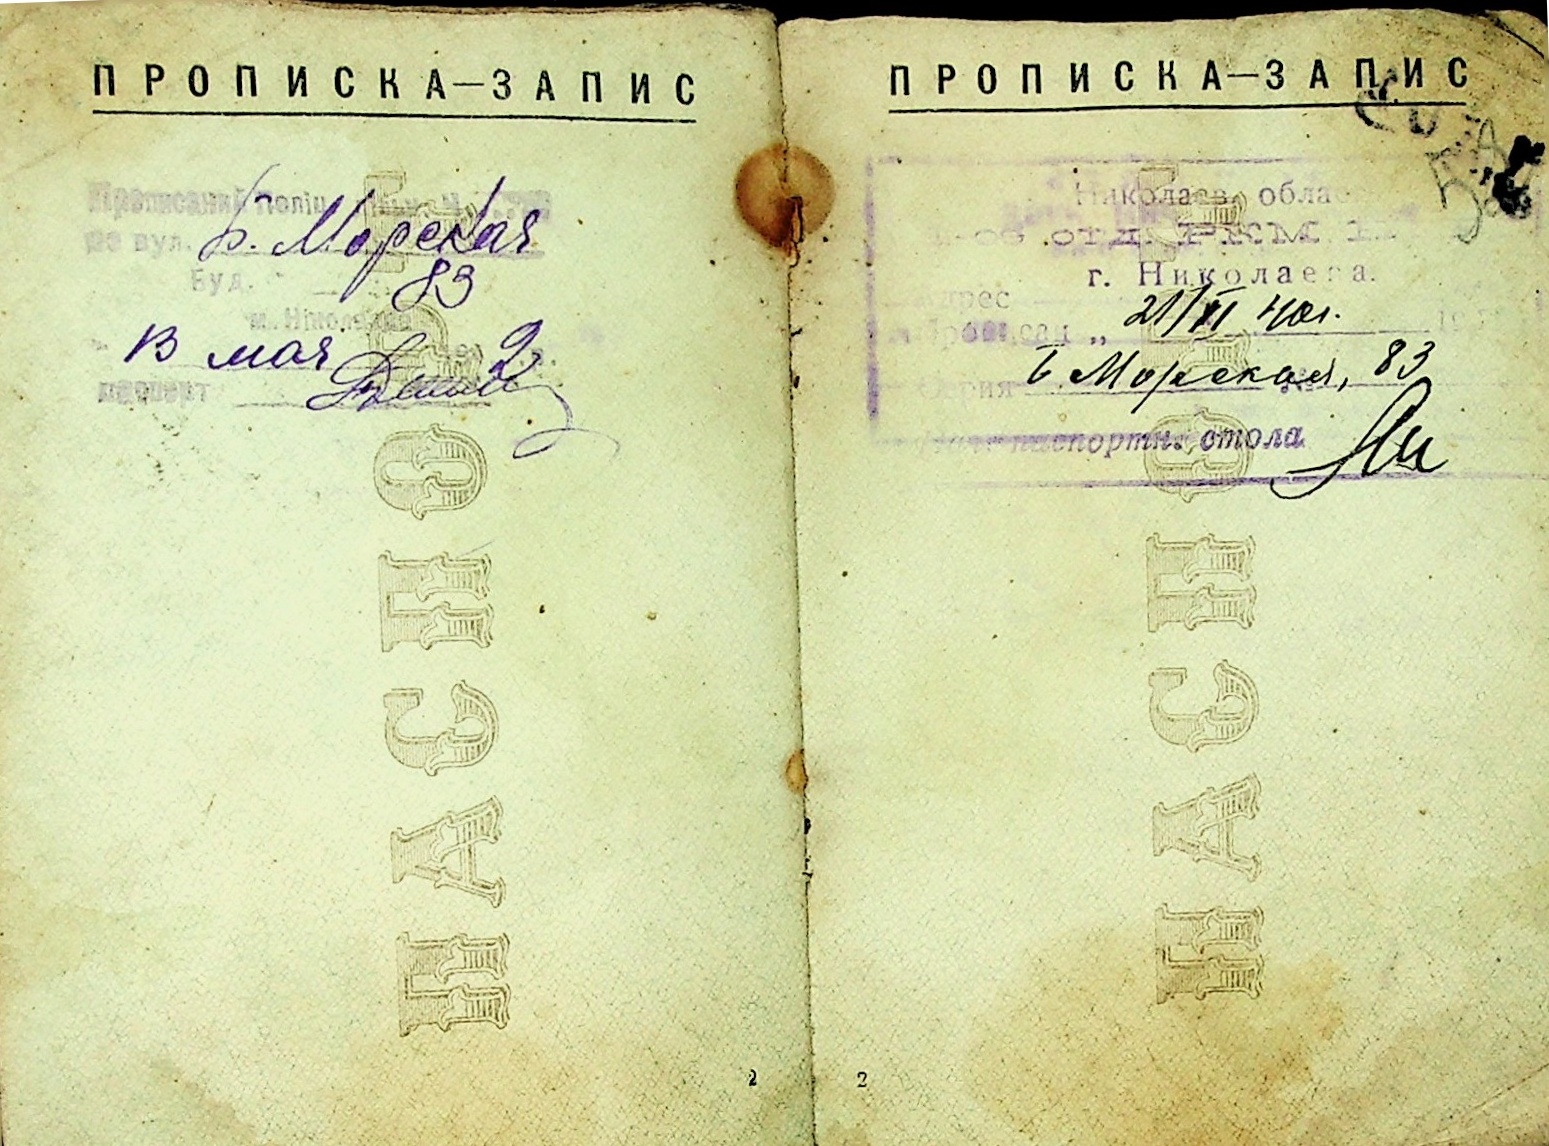 ПРОПИСКА—ЗАПИС
Прописаний
по вул. Б. Морская
Буд. 83
13 мая 2
паспорт
ПАСПОРТ
2
ПРОПИСКА—ЗАПИС
Николаев. облас
отд. РКМ
г. Николаева.
Адрес
Прописан „ 21/VI 40г.
Б Морская, 83
Серия
паспортн. стола
ПАСПОРТ
2